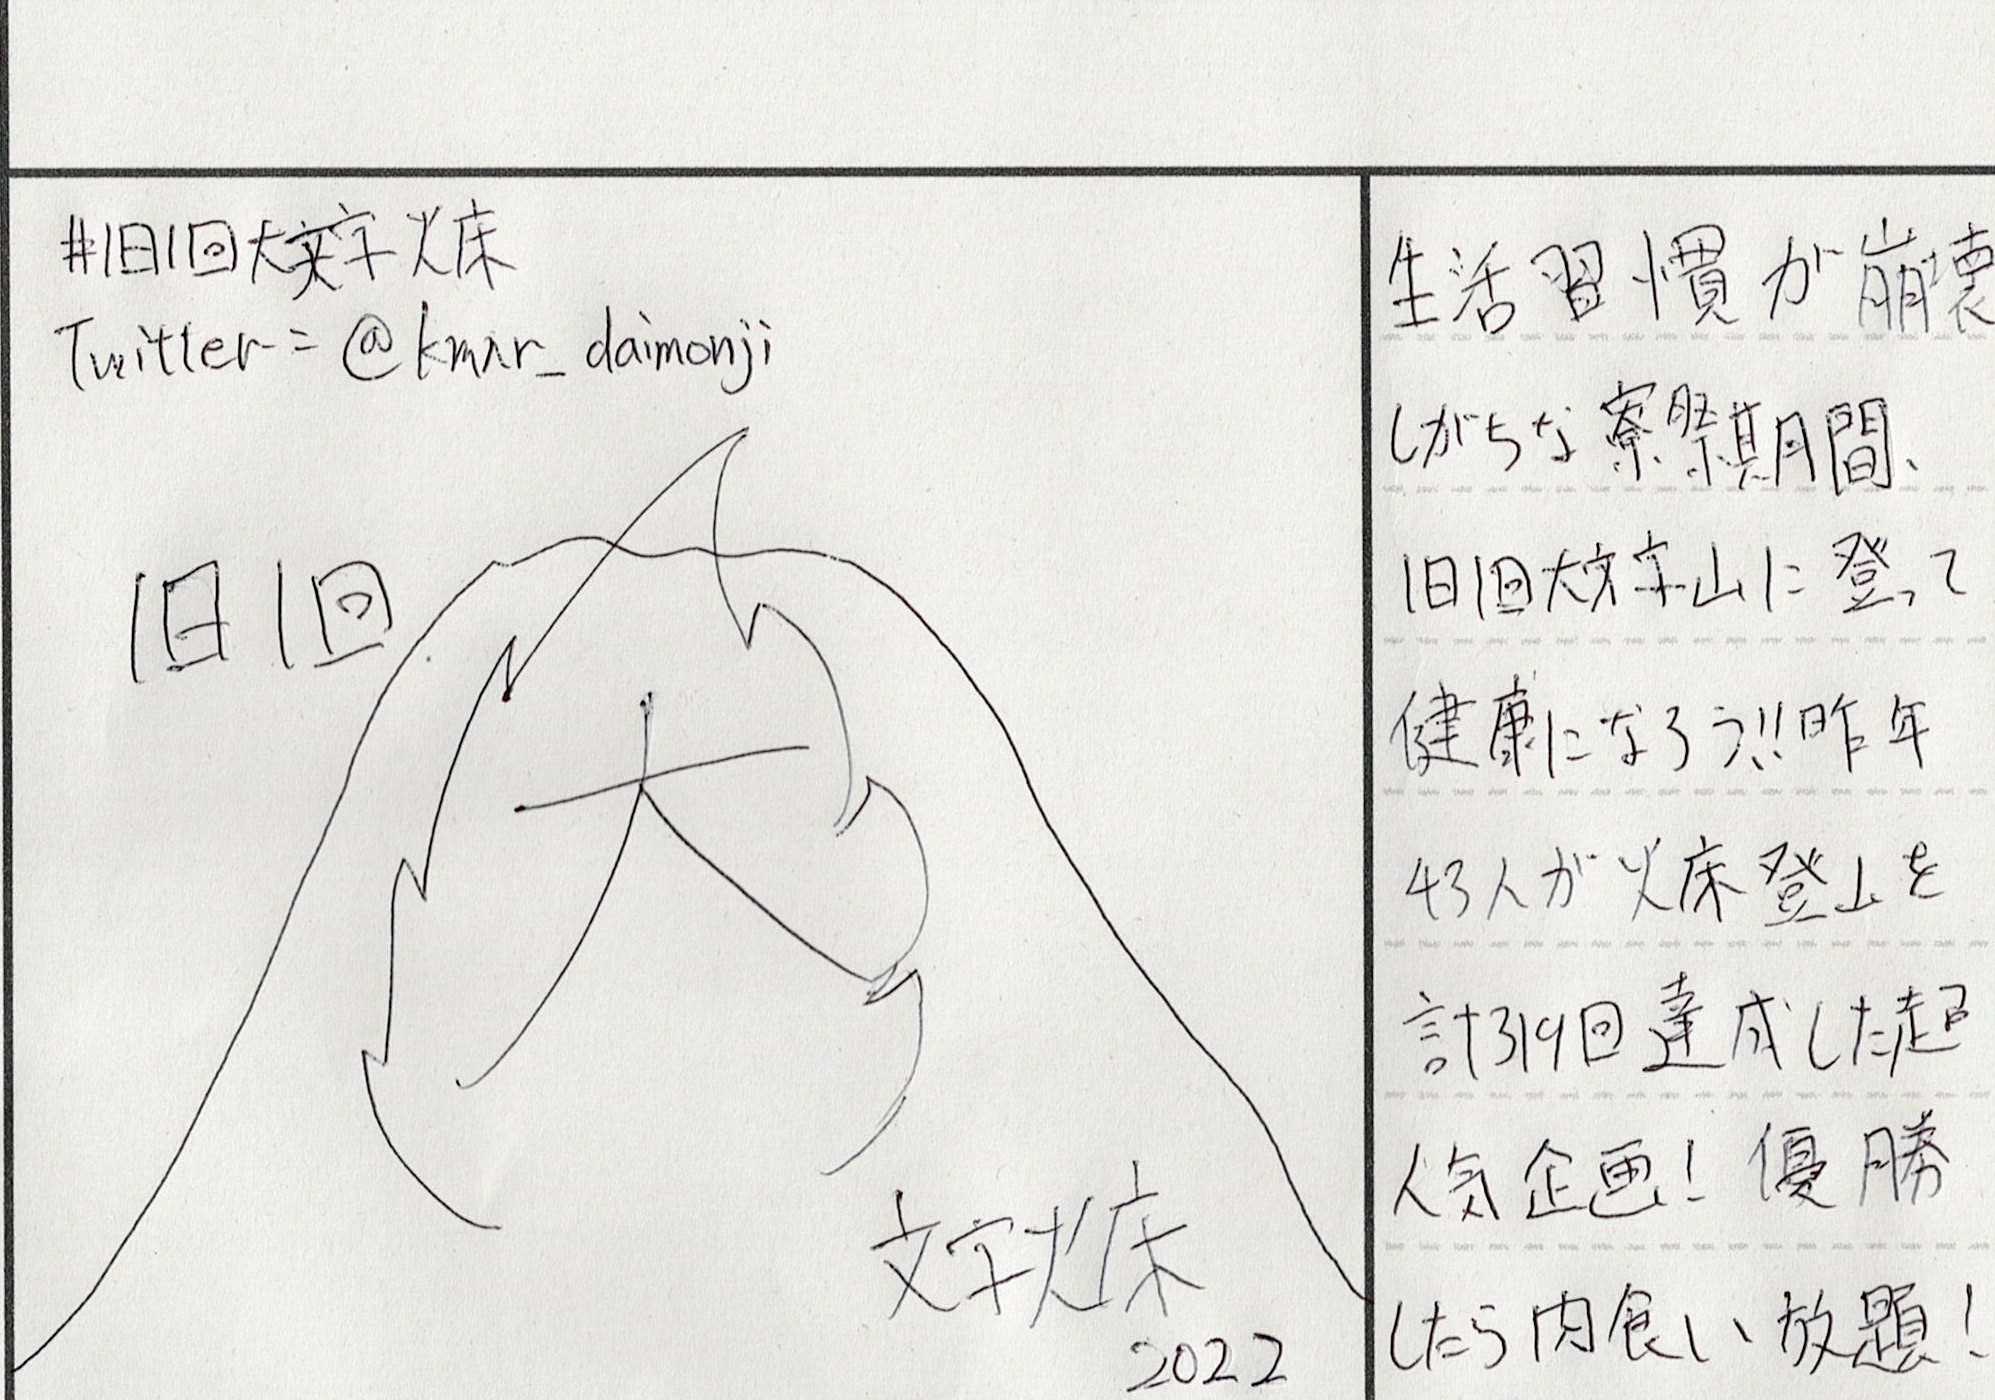 #1日1回大文字火床
Twitter= @kmnr_daimonji
1日1回
大
文字火床
2022
生活習慣が崩壊
しがちな寮祭期間、
1日1回大文字山に登って
健康になろう!!昨年
43人が火床登山を
計319回達成した超
人気企画!優勝
したら肉食い放題!